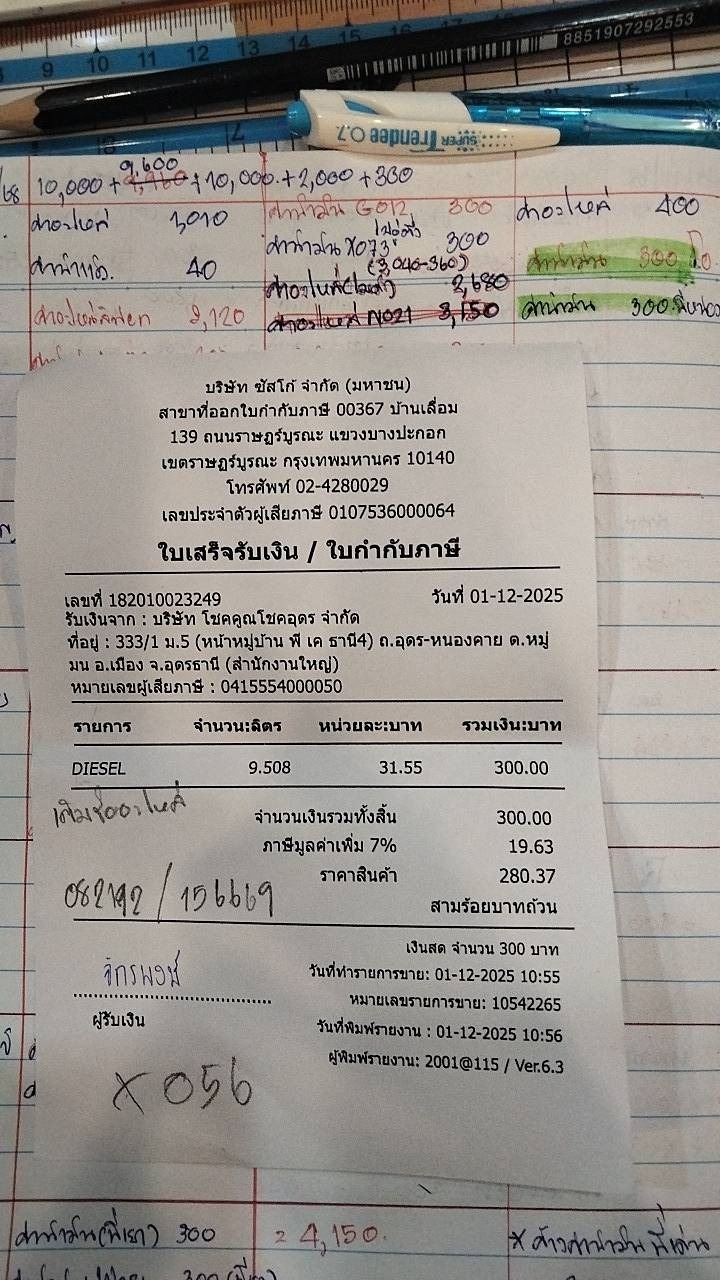 9 10 11 12 13 14 15 16 17
8851907292553
SUPER Trendee 0.7
9,600
/68 10,000 + 9,960 + 10,000 + 2,000 + 300
ค่าอะไหล่ 1,010
40
2,120
ค่าน้ำมัน G012 300
ค่าน้ำมัน X073 300
(3,040-360)
2,680
ค่าอะไหล่ N021 3,150
ค่าอะไหล่ 400
ค่าน้ำมัน 300
ค่าน้ำมัน 300
บริษัท ซัสโก้ จำกัด (มหาชน)
สาขาที่ออกใบกำกับภาษี 00367 บ้านเลื่อม
139 ถนนราษฏร์บูรณะ แขวงบางปะกอก
เขตราษฏร์บูรณะ กรุงเทพมหานคร 10140
โทรศัพท์ 02-4280029
เลขประจำตัวผู้เสียภาษี 0107536000064
ใบเสร็จรับเงิน / ใบกำกับภาษี
เลขที่ 182010023249 วันที่ 01-12-2025
รับเงินจาก : บริษัท โชคคูณโชคอุดร จำกัด
ที่อยู่ : 333/1 ม.5 (หน้าหมู่บ้าน พี เค ธานี4) ถ.อุดร-หนองคาย ต.หมู่
มน อ.เมือง จ.อุดรธานี (สำนักงานใหญ่)
หมายเลขผู้เสียภาษี : 0415554000050
รายการ จำนวน:ลิตร หน่วยละ:บาท รวมเงิน:บาท
DIESEL 9.508 31.55 300.00
เติมซื้ออะไหล่
จำนวนเงินรวมทั้งสิ้น 300.00
ภาษีมูลค่าเพิ่ม 7% 19.63
ราคาสินค้า 280.37
082192 / 156669
สามร้อยบาทถ้วน
เงินสด จำนวน 300 บาท
จักรพงษ์
วันที่ทำรายการขาย: 01-12-2025 10:55
หมายเลขรายการขาย: 10542265
ผู้รับเงิน
วันที่พิมพ์รายงาน : 01-12-2025 10:56
ผู้พิมพ์รายงาน: 2001@115 / Ver.6.3
X056
ค่าน้ำมัน(พี่เยา) 300 = 4,150. * ค้างค่าน้ำมันพี่เด่น